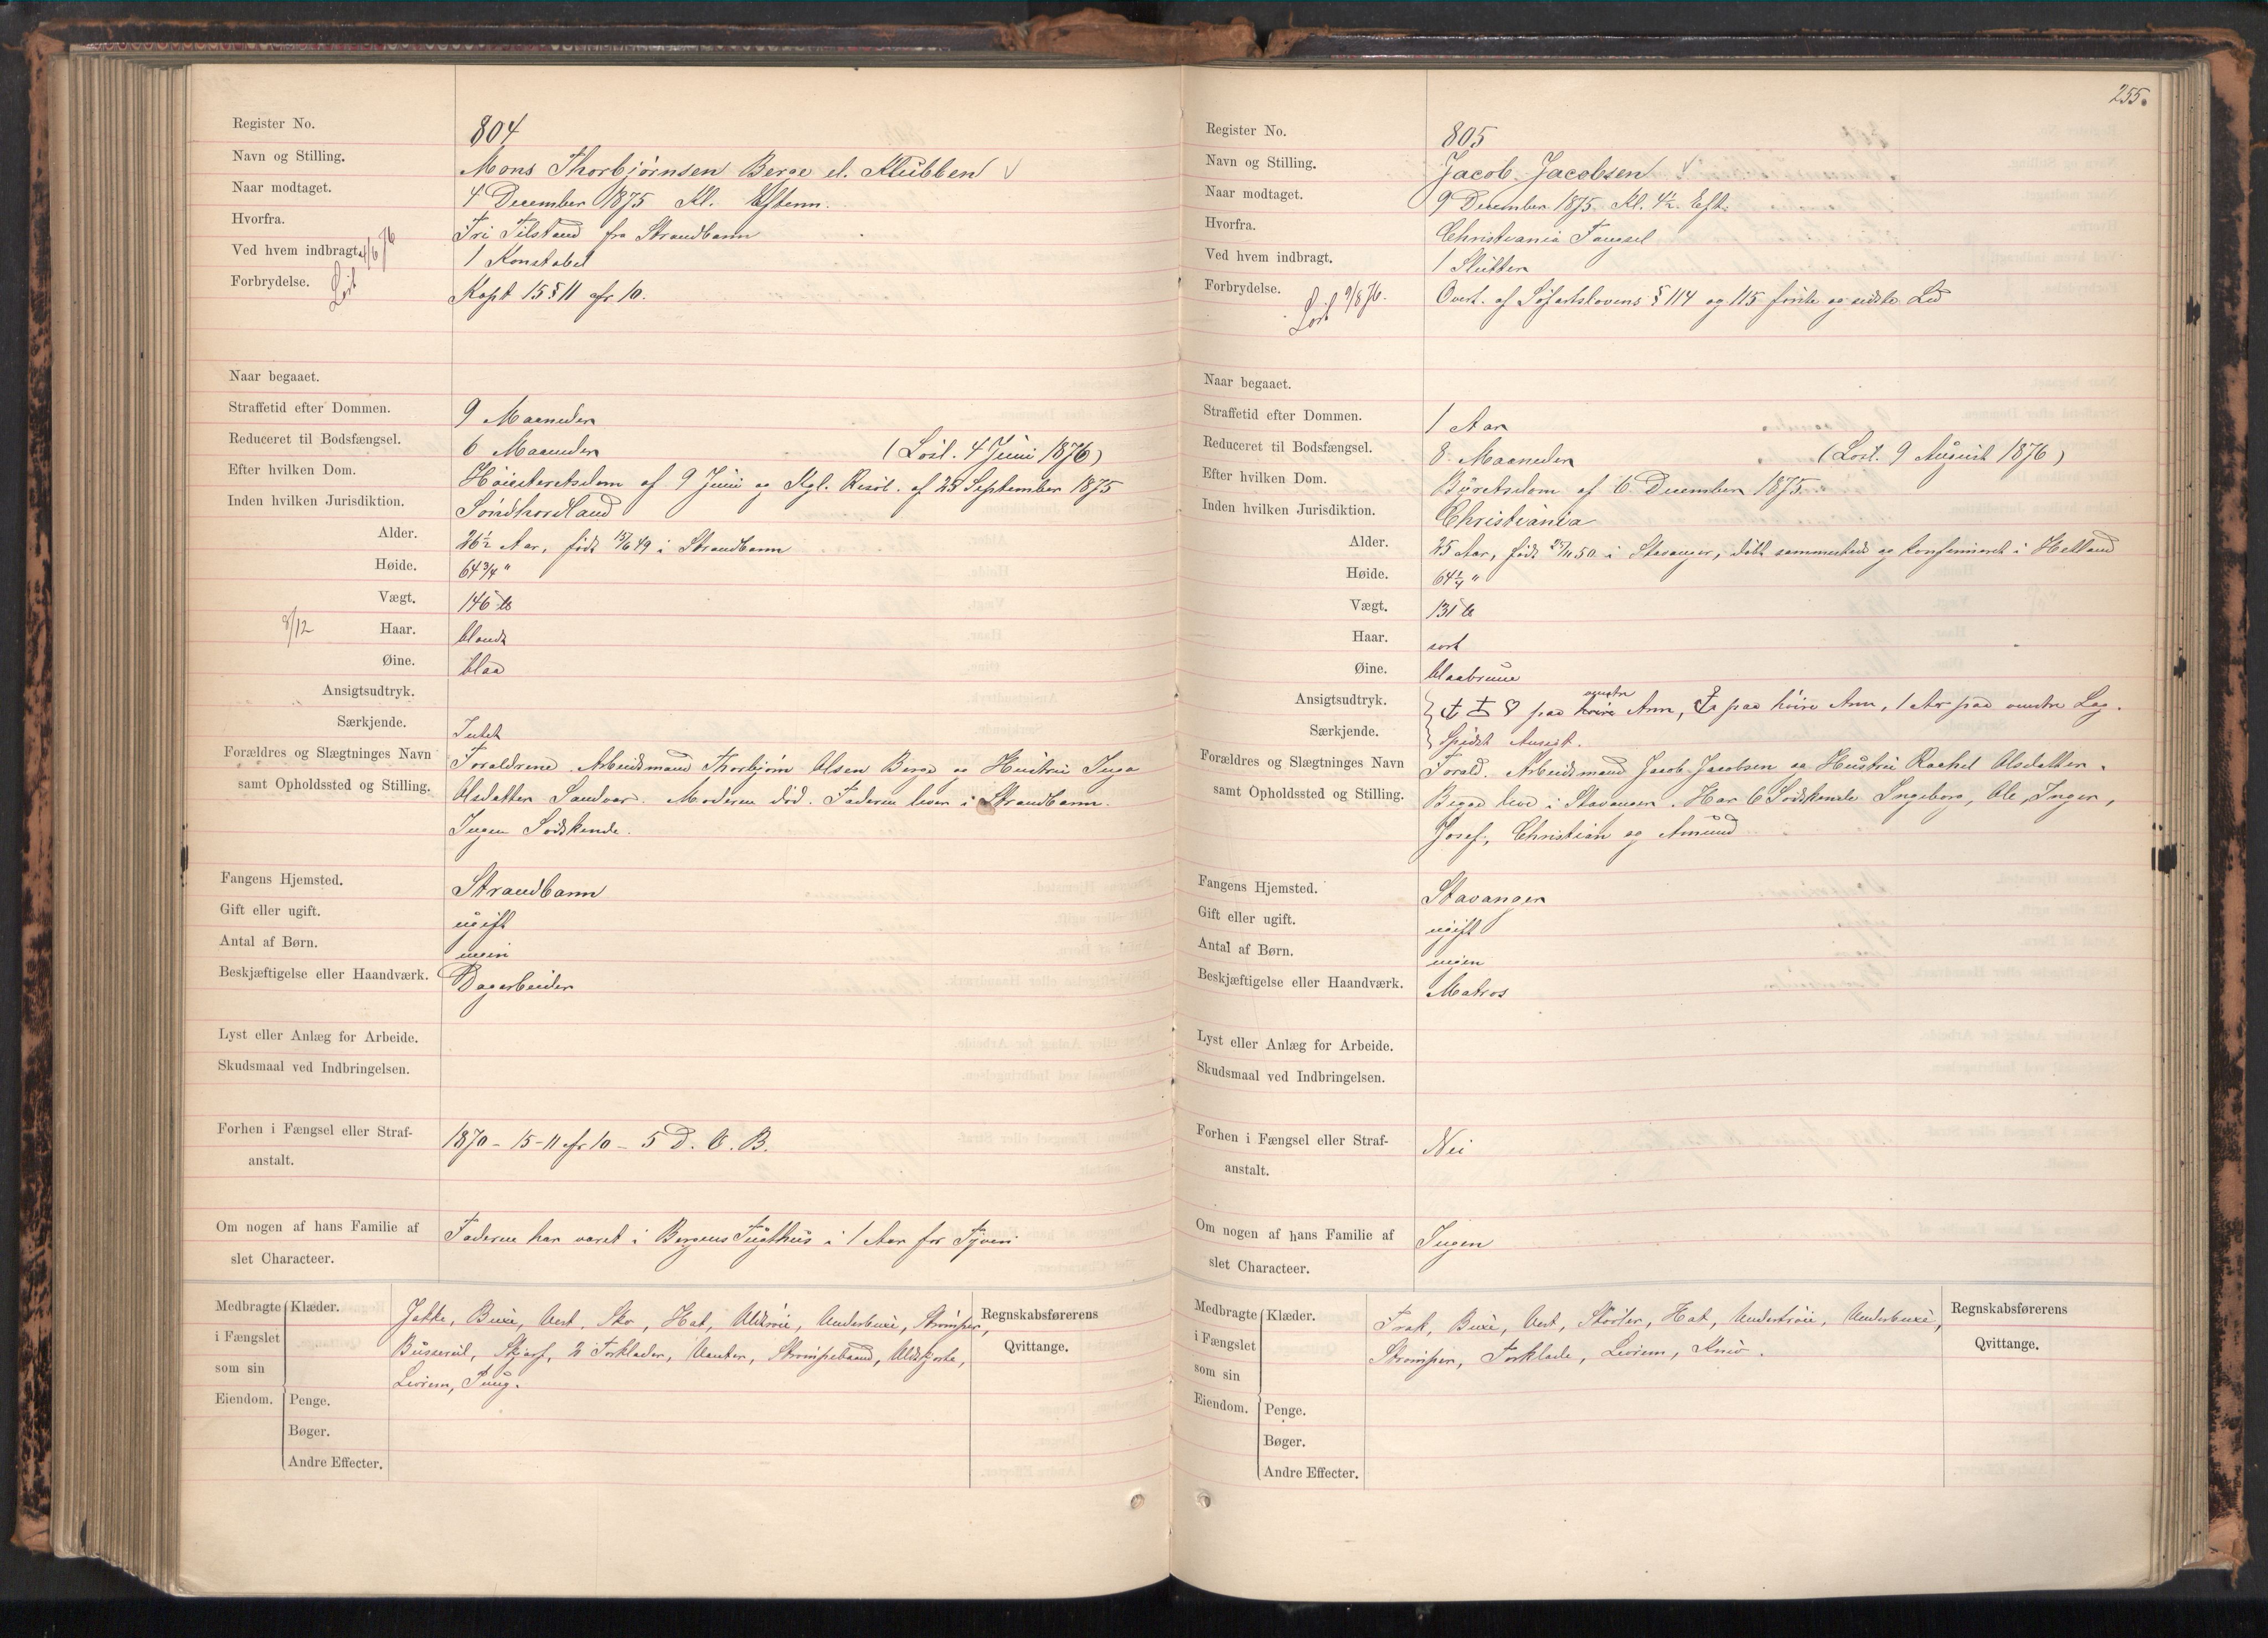 Register No. 804
Navn og Stilling. Mons Thorbjørnsen Berge el. Klubben √
Naar modtaget. 4 December 1875 Kl. Efterm.
Hvorfra. Fri Tilstand fra Strandbarm
Ved hvem indbragt. 1 Konstabel
4/6 76
Forbrydelse. Kapt 15 § 11 cfr 10.
Løsl
Naar begaaet.
Straffetid efter Dommen. 9 Maaneder
Reduceret til Bodsfængsel. 6 Maaneder (Løsl. 4 Juni 1876)
Efter hvilken Dom. Høiesteretsdom af 9 Juni og Kgl. Resol. af 25 September 1875
Inden hvilken Jurisdiktion. Søndhordland
Alder. 26½ Aar, født /6 49 i Strandbarm
Høide. 64¾"
Vægt. 146 ℔
8/12
Haar. blondt
Øine. blaa
Ansigtsudtryk.
Særkjende. Intet
Forældres og Slægtninges Navn Forældrene Arbeidsmand Thorbjørn Olsen Berge og Hustru Inga
samt Opholdssted og Stilling. Olsdatter Sandver. Moderen død. Faderen lever i Strandbarm.
Ingen Sødskende.
Fangens Hjemsted. Strandbarm
Gift eller ugift. ugift
Antal af Børn. ingen
Beskjæftigelse eller Haandværk. Dagarbeider
Lyst eller Anlæg for Arbeide.
Skudsmaal ved Indbringelsen.
Forhen i Fængsel eller Straf- 1870 - 15 - 11 cfr 10 - 5 D. V. B.
anstalt.
Om nogen af hans Familie af Faderen har været i Bergens Tugthus i 1 Aar for Tyveri
slet Characteer.
Medbragte Klæder. Jakke, Buxe, Vest, Sko, Hat, Uldtrøie, Underbuxe, Strømper, Regnskabsførerens
i Fængslet Buseruld, Skjærf, 2 Forklæder, Vanter, Strømpebaand, Uldskjorte, Qvittange.
som sin Livrem, Pung.
Eiendom. Penge.
Bøger.
Andre Effecter.
255.
Register No. 805
Navn og Stilling. Jacob Jacobsen √
Naar modtaget. 9 December 1875 Kl. 4½ Eft.
Hvorfra. Christiania Fængsel
Ved hvem indbragt. 1 Slutter
Forbrydelse. Overt. af Søfartslovens § 114 og 115 første og sidste Led
Løsl 9/8 76.
Naar begaaet.
Straffetid efter Dommen. 1 Aar
Reduceret til Bodsfængsel. 8 Maaneder (Løsl. 9 August 1876)
Efter hvilken Dom. Byretsdom af 6 December 1875
Inden hvilken Jurisdiktion. Christiania
Alder. 25 Aar, født 25/11 50 i Stavanger, døbt sammesteds og konfirmeret i Hetland
Høide. 64¼"
Vægt. 131 ℔
Haar. sort
Øine. blaabrune
venstre
Ansigtsudtryk. paa høire Arm, paa høire Arm, 1 Ar paa venstre Læg.
Særkjende. Spidst Ansigt.
Forældres og Slægtninges Navn Foræld. Arbeidsmand Jacob Jacobsen og Hustru Rachel Olsdatter.
samt Opholdssted og Stilling. Begge leve i Stavanger. Har 6 Sødskende Ingeborg, Ole, Inger,
Josef, Christian og Amund
Fangens Hjemsted. Stavanger
Gift eller ugift. ugift
Antal af Børn. ingen
Beskjæftigelse eller Haandværk. Matros
Lyst eller Anlæg for Arbeide.
Skudsmaal ved Indbringelsen.
Forhen i Fængsel eller Straf- Nei
anstalt.
Om nogen af hans Familie af Ingen
slet Characteer.
Medbragte Klæder. Frak, Buxe, Vest, Støvler, Hat, Undertrøie, Underbuxe, Regnskabsførerens
i Fængslet Strømper, Forklæde, Livrem, Kniv. Qvittange.
som sin
Eiendom. Penge.
Bøger.
Andre Effecter.